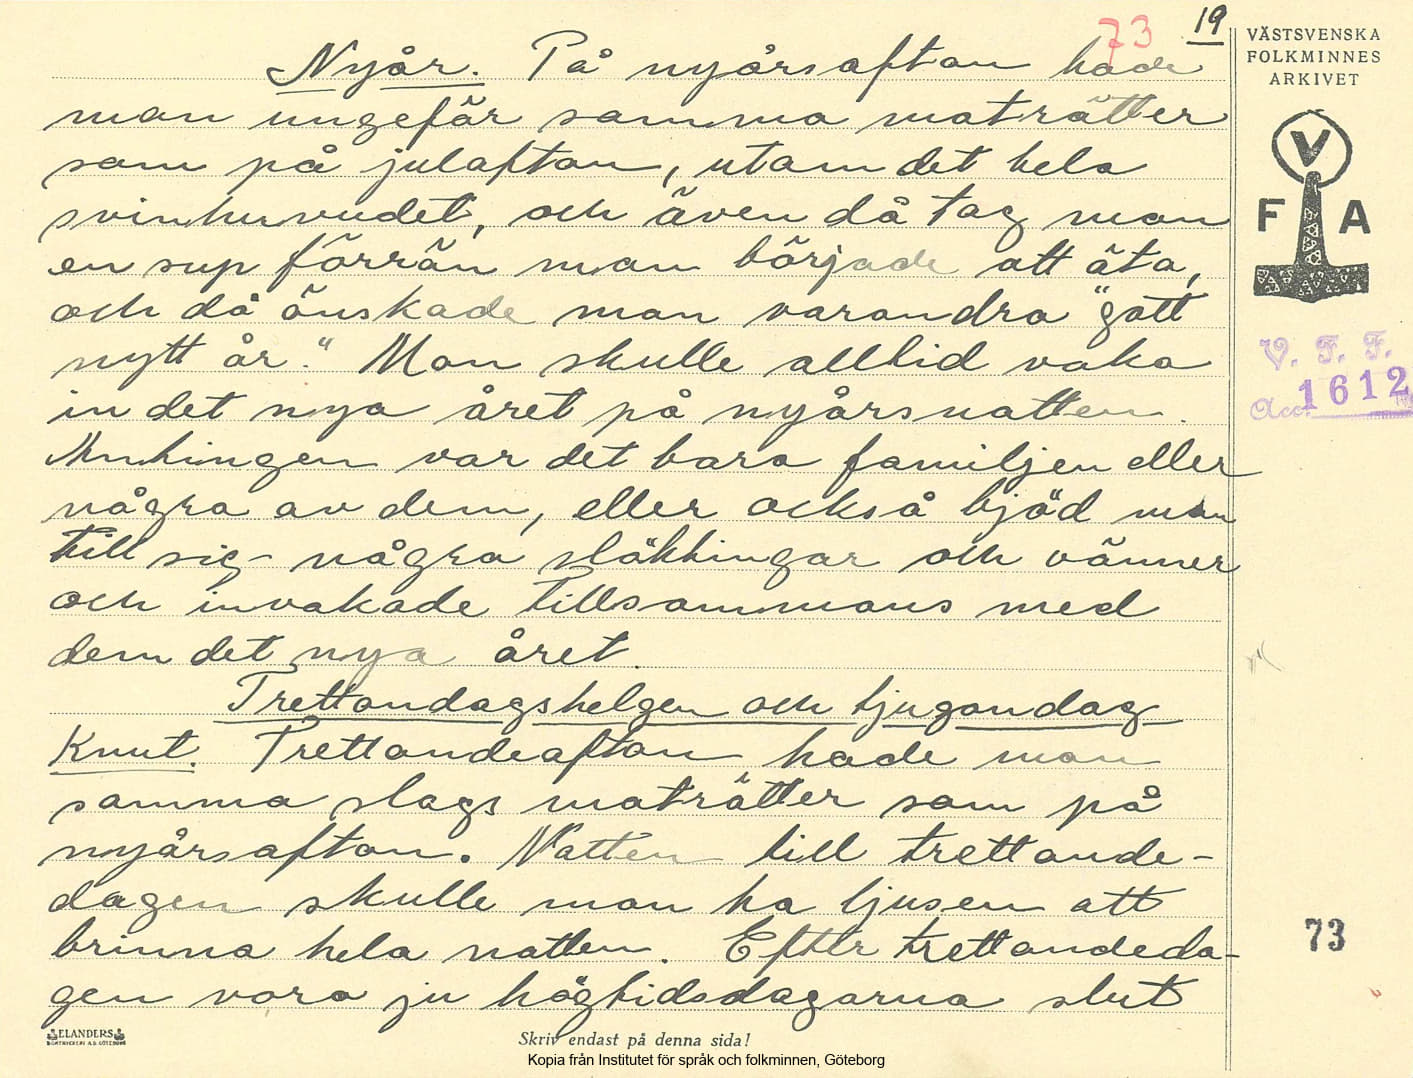 73 19
VÄSTSVENSKA
FOLKMINNES
ARKIVET
V
F A
V. F. F.
Acc. 1612
Nyår. På nyårsafton hade
man ungefär samma maträtter
som på julafton, utom det hela
svinhuvudet, och även då tag man
en sup förrän man började att äta,
och då önskade man varandra "gott
nytt år." Man skulle alltid vaka
in det nya året på nyårsnatten.
Antingen var det bara familjen eller
några av dem, eller också bjöd man
till sig några släktingar och vänner
och invakade tillsammans med
dem det nya året.
Trettondagshelgen och tjugondag
Knut. Trettondeafton hade man
samma slags maträtter som på
nyårsafton. Natten till trettonde-
dagen skulle man ha ljusen att
brinna hela natten. Efter trettondeda-
gen voro ju högtidsdagarna slut
73
ELANDERS
BOKTRYCKERI A.B. GÖTEBORG
Skriv endast på denna sida!
Kopia från Institutet för språk och folkminnen, Göteborg